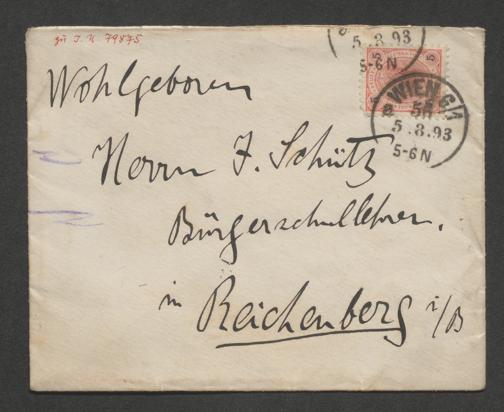 zu I. N. 79875
5 .8.93
5-6 N
WIEN 6/1
5 .8.93
5-6 N
Wohlgeboren
Herrn J. Schütz
Bürgerschullehrer.
in Reichenberg i/B